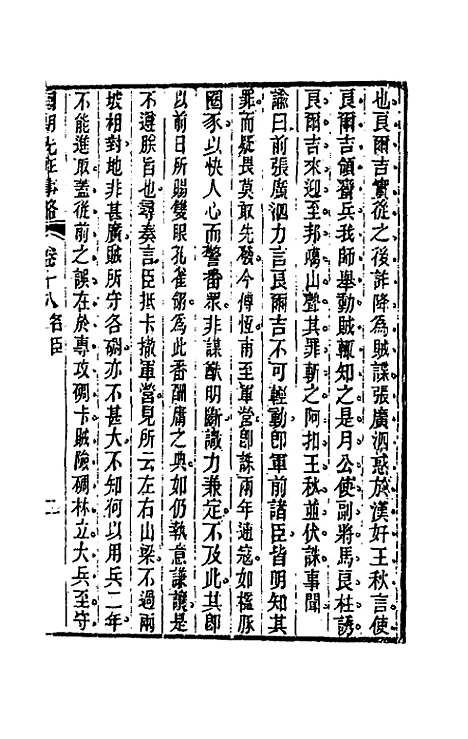 也良爾吉實從之後詐降為賊諜張廣泗惑於漢奸王秋言使
良爾吉領蠻兵我師舉動賊輒知之是月公使副將馬良柱誘
良爾吉來迎至邦噶山聲其罪斬之阿扣王秋並伏誅事聞
諭曰前張廣泗力言良爾吉不可輕動卽軍前諸臣皆明知其
罪而疑畏莫敢先發今傅恆甫至軍營卽誅兩年逋寇如檻豚
圈豕以快人心而警番衆非謀猷明斷識力兼定不及此其卽
以前日所賜雙眼孔雀翎為此番酬庸之典如仍執意謙讓是
不遵朕旨也尋奏言臣抵卡撤軍營見所云左右山梁不過兩
坡相對地非甚廣賊所守各碉亦不甚大不知何以用兵二年
不能進取蓋從前之誤在於專攻碉卡賊險碉林立大兵至守
國朝先正事略 卷十八名臣 二